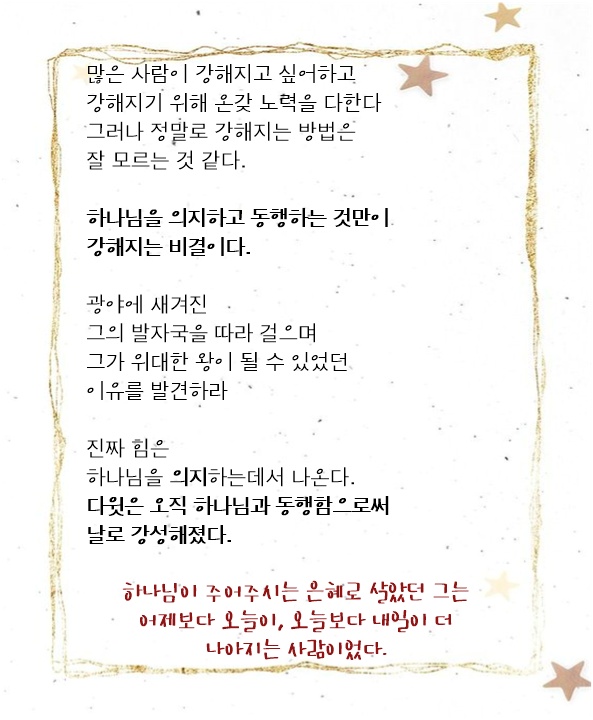 많은 사람이 강해지고 싶어하고
강해지기 위해 온갖 노력을 다한다
그러나 정말로 강해지는 방법은
잘 모르는 것 같다.
하나님을 의지하고 동행하는 것만이
강해지는 비결이다.
광야에 새겨진
그의 발자국을 따라 걸으며
그가 위대한 왕이 될 수 있었던
이유를 발견하라
진짜 힘은
하나님을 의지하는데서 나온다.
다윗은 오직 하나님과 동행함으로써
날로 강성해졌다.
하나님이 주어주시는 은혜로 살았던 그는
어제보다 오늘이, 오늘보다 내일이 더
나아지는 사람이었다.